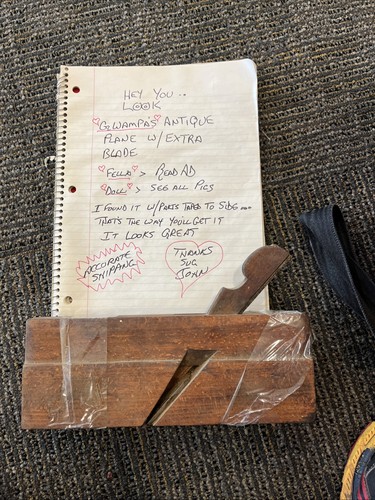 HEY YOU..
LOOK
"GWAMPA'S" ANTIQUE
PLANE W/EXTRA
BLADE
"FELLA" > READ AD
"DOLL" > SEE ALL PICS
I FOUND IT W/PARTS TAPED TO SIDE....
THAT'S THE WAY YOU'LL GET IT
IT LOOKS GREAT
ACCURATE
SHIPPING
THANKS
SUG
JOHN